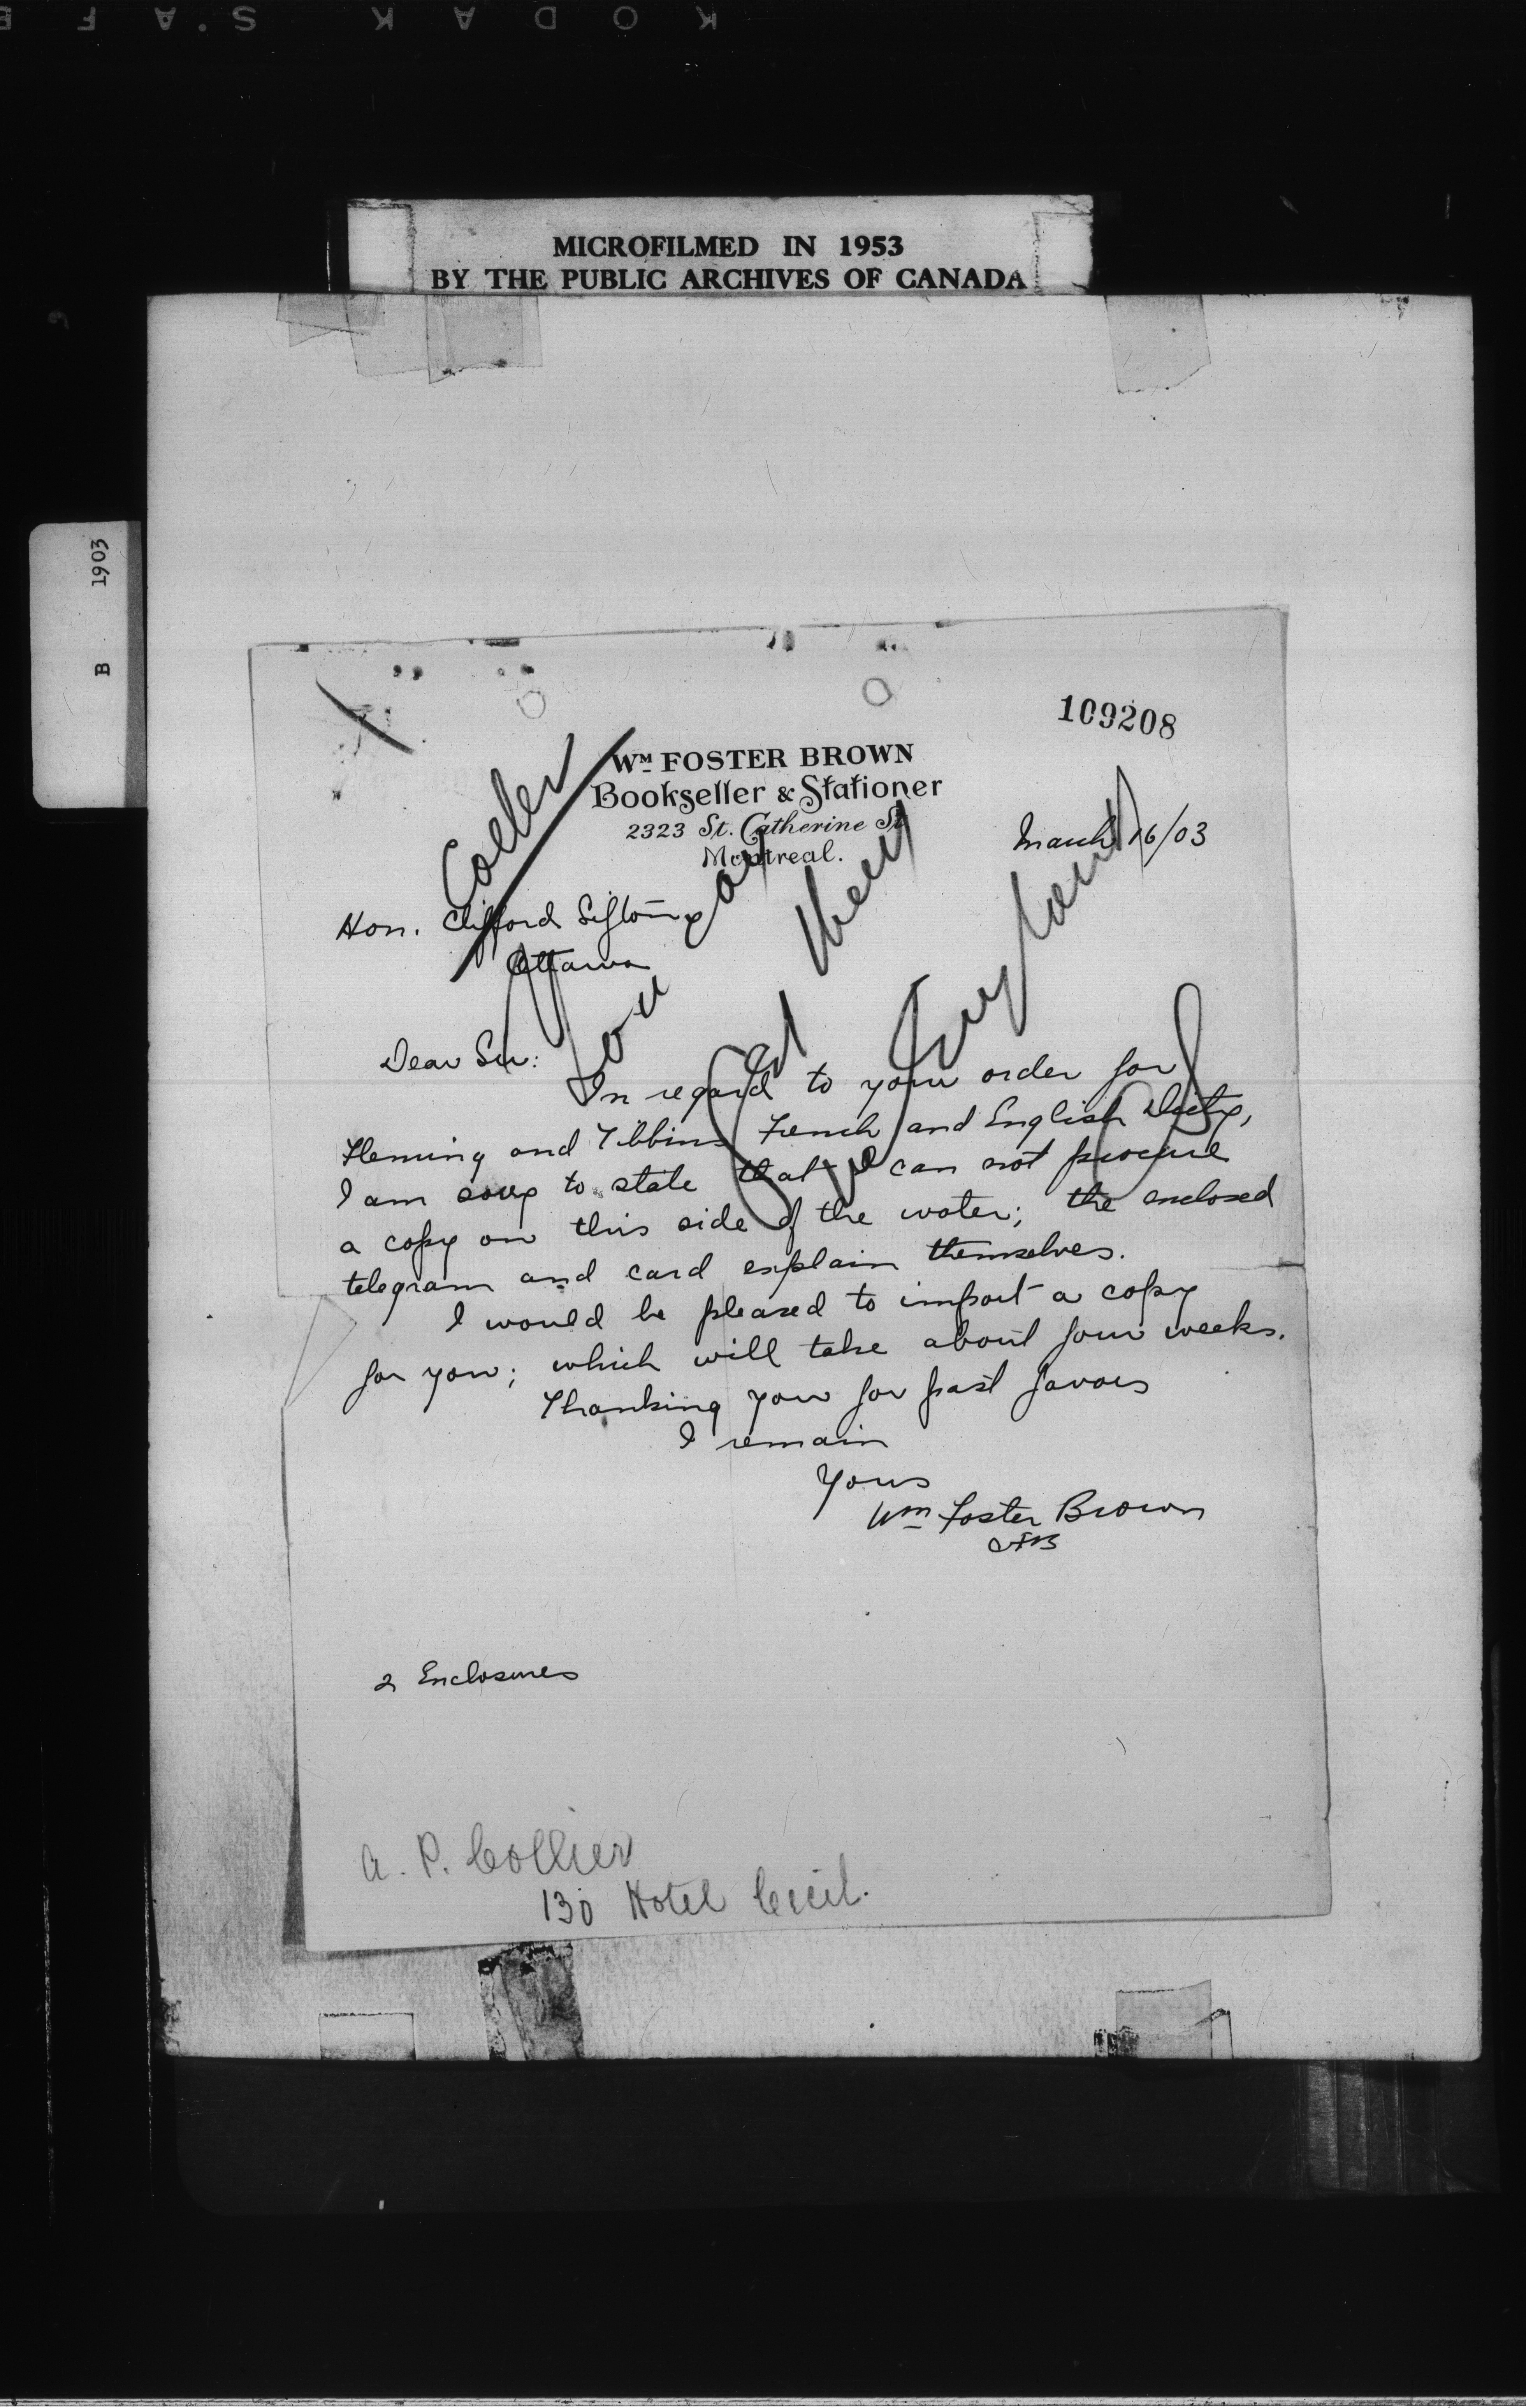 KODAK S.A F E
MICROFILMED IN 1953
BY THE PUBLIC ARCHIVES OF CANADA
B 1903
109208
Wm FOSTER BROWN
Bookseller & Stationer
2323 St. Catherine St.
Montreal.
March 16/03
Hon. Clifford Sifton,
Ottawa
Dear Sir:
In regard to your order for
Fleming and Tibbins French and English Dicty,
I am sorry to state that we can not procure
a copy on this side of the water; the enclosed
telegram and card explain themselves.
I would be pleased to import a copy
for you; which will take about four weeks.
Thanking you for past favors
I remain
Yours
Wm Foster Brown
2 Enclosures
A. P. Collier
130 Hotel Cecil.
Collier
You can
get
in England